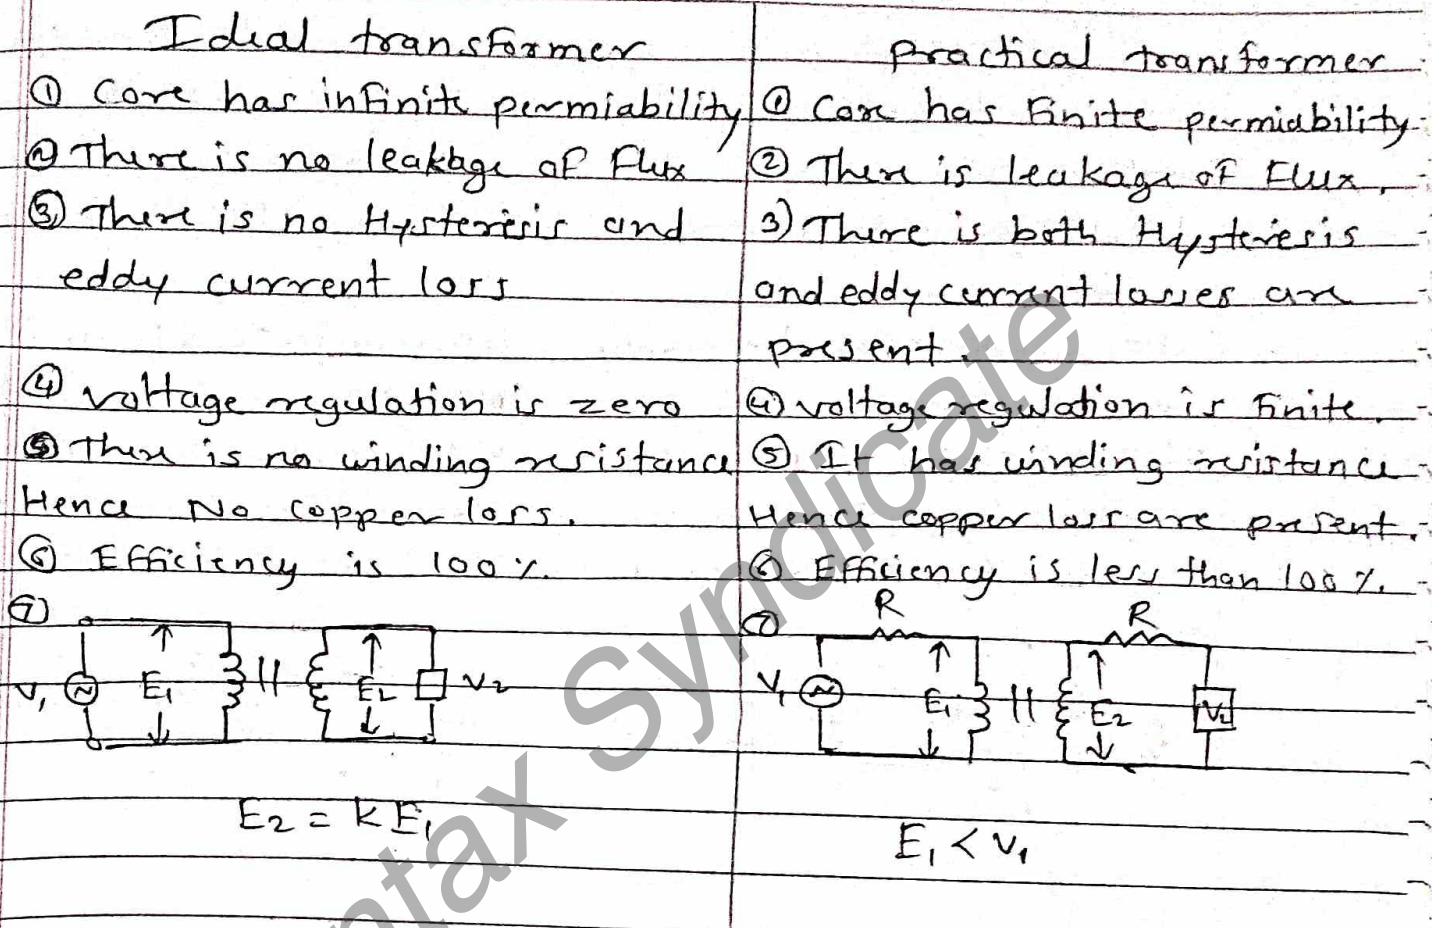 Ideal transformer
① Core has infinite permiability
② There is no leakage of Flux
③ There is no Hysterisis and
eddy current loss
④ voltage regulation is zero
⑤ There is no winding resistance
Hence No copper loss.
⑥ Efficiency is 100%.
⑦
V₁ E₁ E₂ V₂
E₂ = K E₁
Practical transformer
① Core has Finite permiability
② There is leakage of Flux.
3) There is both Hysteresis
and eddy current losses are
present.
④ voltage regulation is Finite.
⑤ It has winding resistance
Hence copper loss are present.
⑥ Efficiency is less than 100%.
⑦
R R
V₁ E₁ E₂ V₂
E₁ < V₁
ntax Syndicate